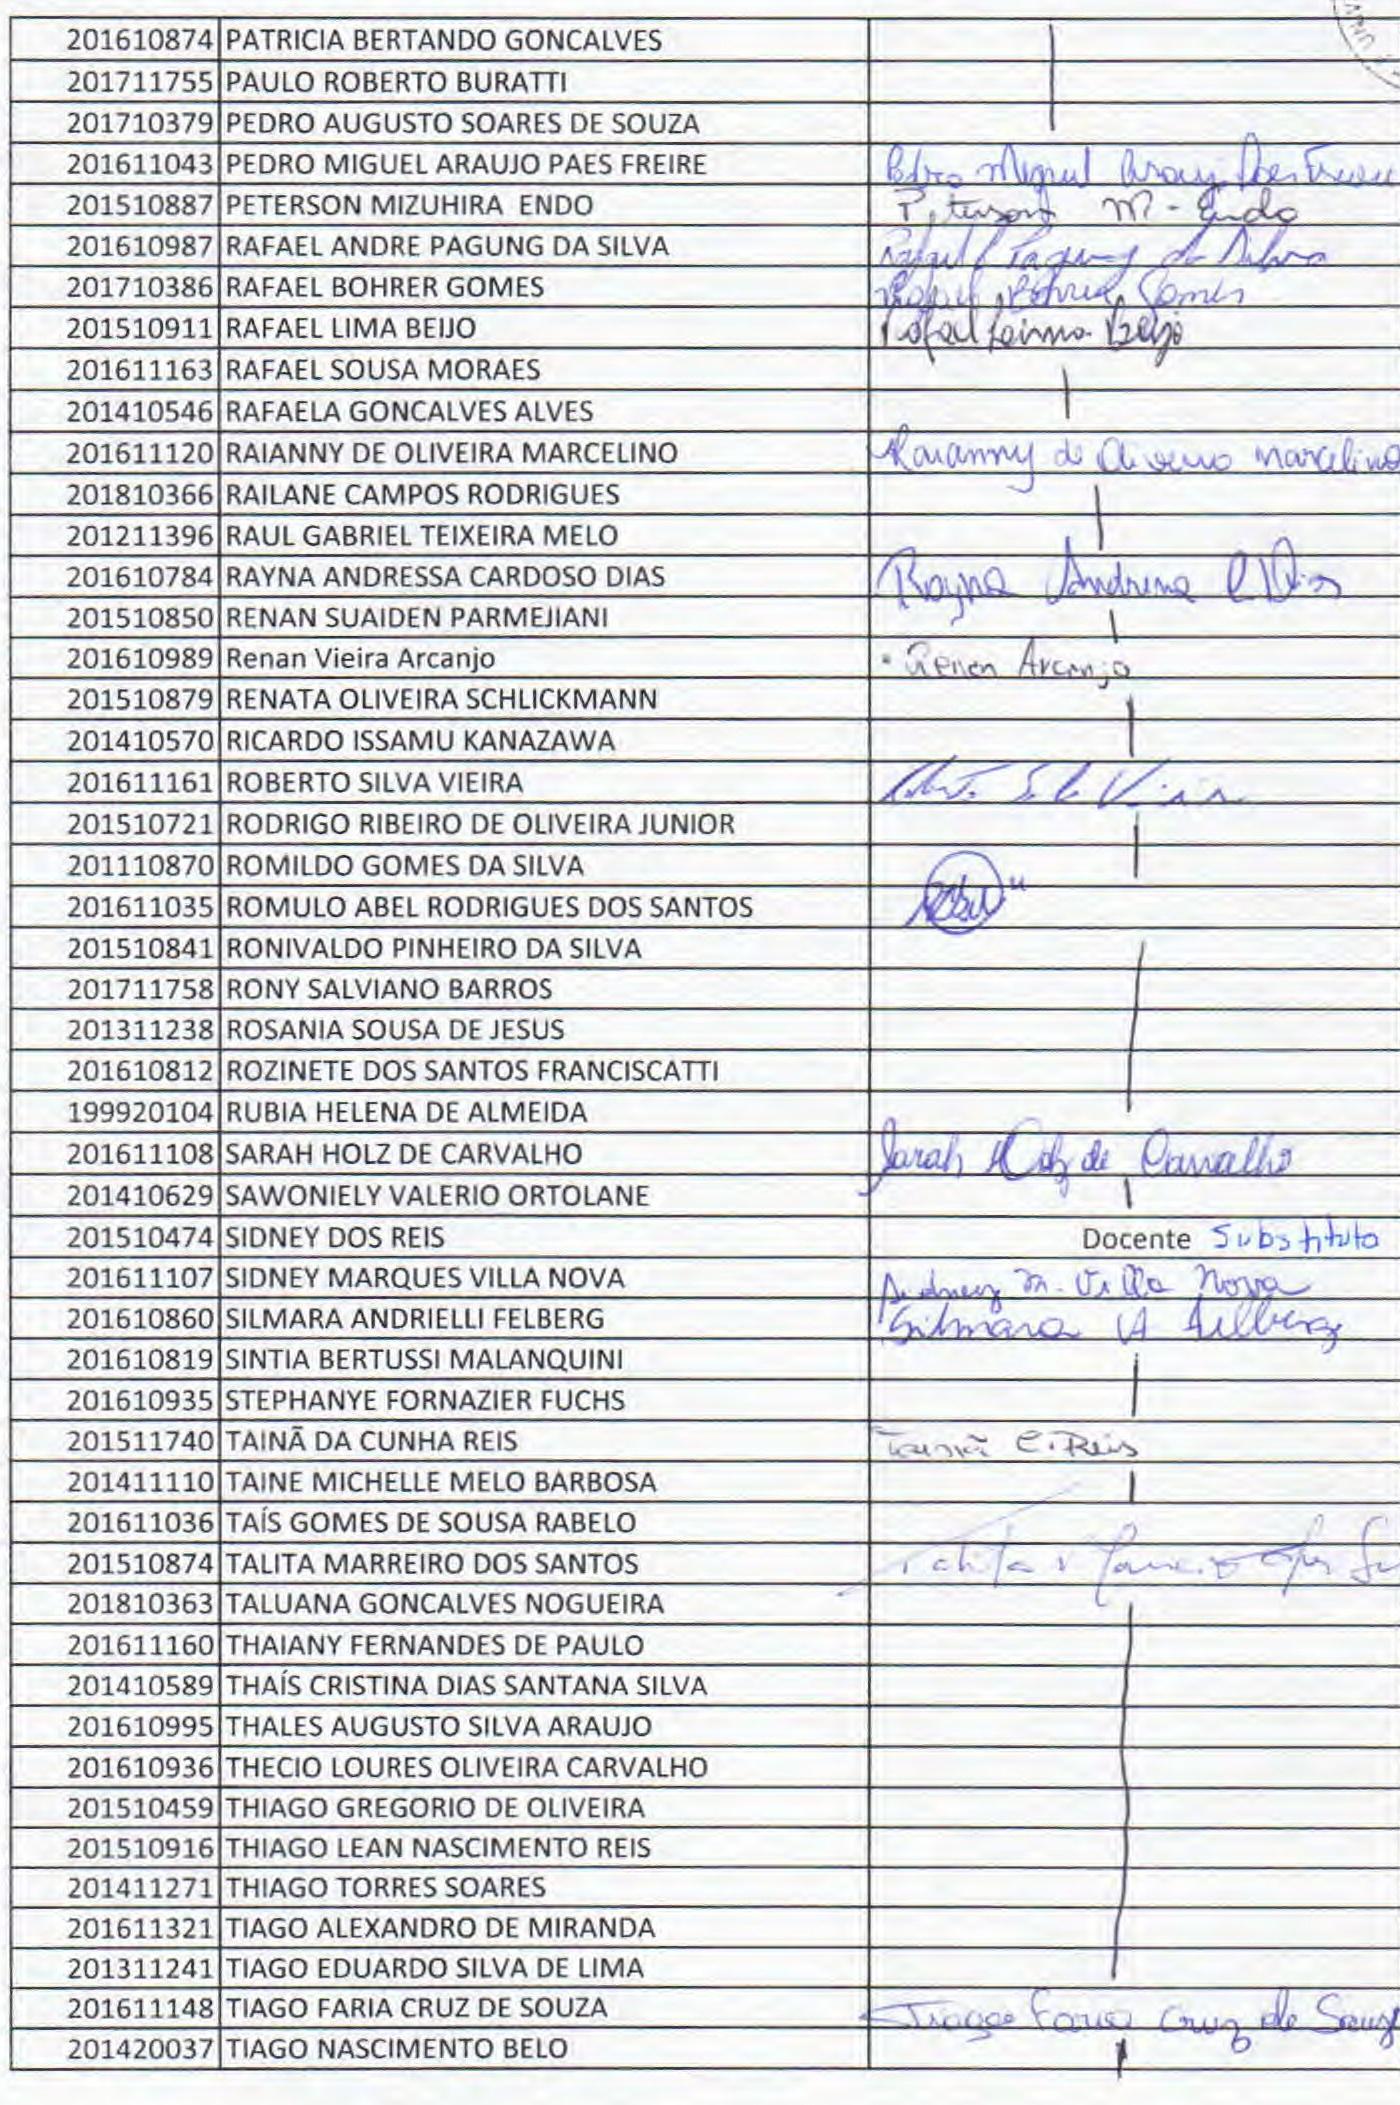 201610874 PATRICIA BERTANDO GONCALVES
201711755 PAULO ROBERTO BURATTI
201710379 PEDRO AUGUSTO SOARES DE SOUZA
201611043 PEDRO MIGUEL ARAUJO PAES FREIRE Pedro Miguel Arauj Paes Freire
201510887 PETERSON MIZUHIRA ENDO Peterson M - Endo
201610987 RAFAEL ANDRE PAGUNG DA SILVA Rafael Pagung da Silva
201710386 RAFAEL BOHRER GOMES Rafael Bohrer Gomes
201510911 RAFAEL LIMA BEIJO Rafael Lima Beijo
201611163 RAFAEL SOUSA MORAES
201410546 RAFAELA GONCALVES ALVES
201611120 RAIANNY DE OLIVEIRA MARCELINO Raianny de Oliveira Marcelino
201810366 RAILANE CAMPOS RODRIGUES
201211396 RAUL GABRIEL TEIXEIRA MELO
201610784 RAYNA ANDRESSA CARDOSO DIAS Rayna Andressa C Dias
201510850 RENAN SUAIDEN PARMEJIANI
201610989 Renan Vieira Arcanjo Renan Arcanjo
201510879 RENATA OLIVEIRA SCHLICKMANN
201410570 RICARDO ISSAMU KANAZAWA
201611161 ROBERTO SILVA VIEIRA
201510721 RODRIGO RIBEIRO DE OLIVEIRA JUNIOR
201110870 ROMILDO GOMES DA SILVA
201611035 ROMULO ABEL RODRIGUES DOS SANTOS
201510841 RONIVALDO PINHEIRO DA SILVA
201711758 RONY SALVIANO BARROS
201311238 ROSANIA SOUSA DE JESUS
201610812 ROZINETE DOS SANTOS FRANCISCATTI
199920104 RUBIA HELENA DE ALMEIDA
201611108 SARAH HOLZ DE CARVALHO Sarah Holz de Carvalho
201410629 SAWONIELY VALERIO ORTOLANE
201510474 SIDNEY DOS REIS Docente Substituto
201611107 SIDNEY MARQUES VILLA NOVA Sidney M. Villa Nova
201610860 SILMARA ANDRIELLI FELBERG Silmara A Felberg
201610819 SINTIA BERTUSSI MALANQUINI
201610935 STEPHANYE FORNAZIER FUCHS
201511740 TAINÃ DA CUNHA REIS Tainã C. Reis
201411110 TAINE MICHELLE MELO BARBOSA
201611036 TAÍS GOMES DE SOUSA RABELO
201510874 TALITA MARREIRO DOS SANTOS Talita
201810363 TALUANA GONCALVES NOGUEIRA
201611160 THAIANY FERNANDES DE PAULO
201410589 THAÍS CRISTINA DIAS SANTANA SILVA
201610995 THALES AUGUSTO SILVA ARAUJO
201610936 THECIO LOURES OLIVEIRA CARVALHO
201510459 THIAGO GREGORIO DE OLIVEIRA
201510916 THIAGO LEAN NASCIMENTO REIS
201411271 THIAGO TORRES SOARES
201611321 TIAGO ALEXANDRO DE MIRANDA
201311241 TIAGO EDUARDO SILVA DE LIMA
201611148 TIAGO FARIA CRUZ DE SOUZA Tiago Faria Cruz de Souza
201420037 TIAGO NASCIMENTO BELO